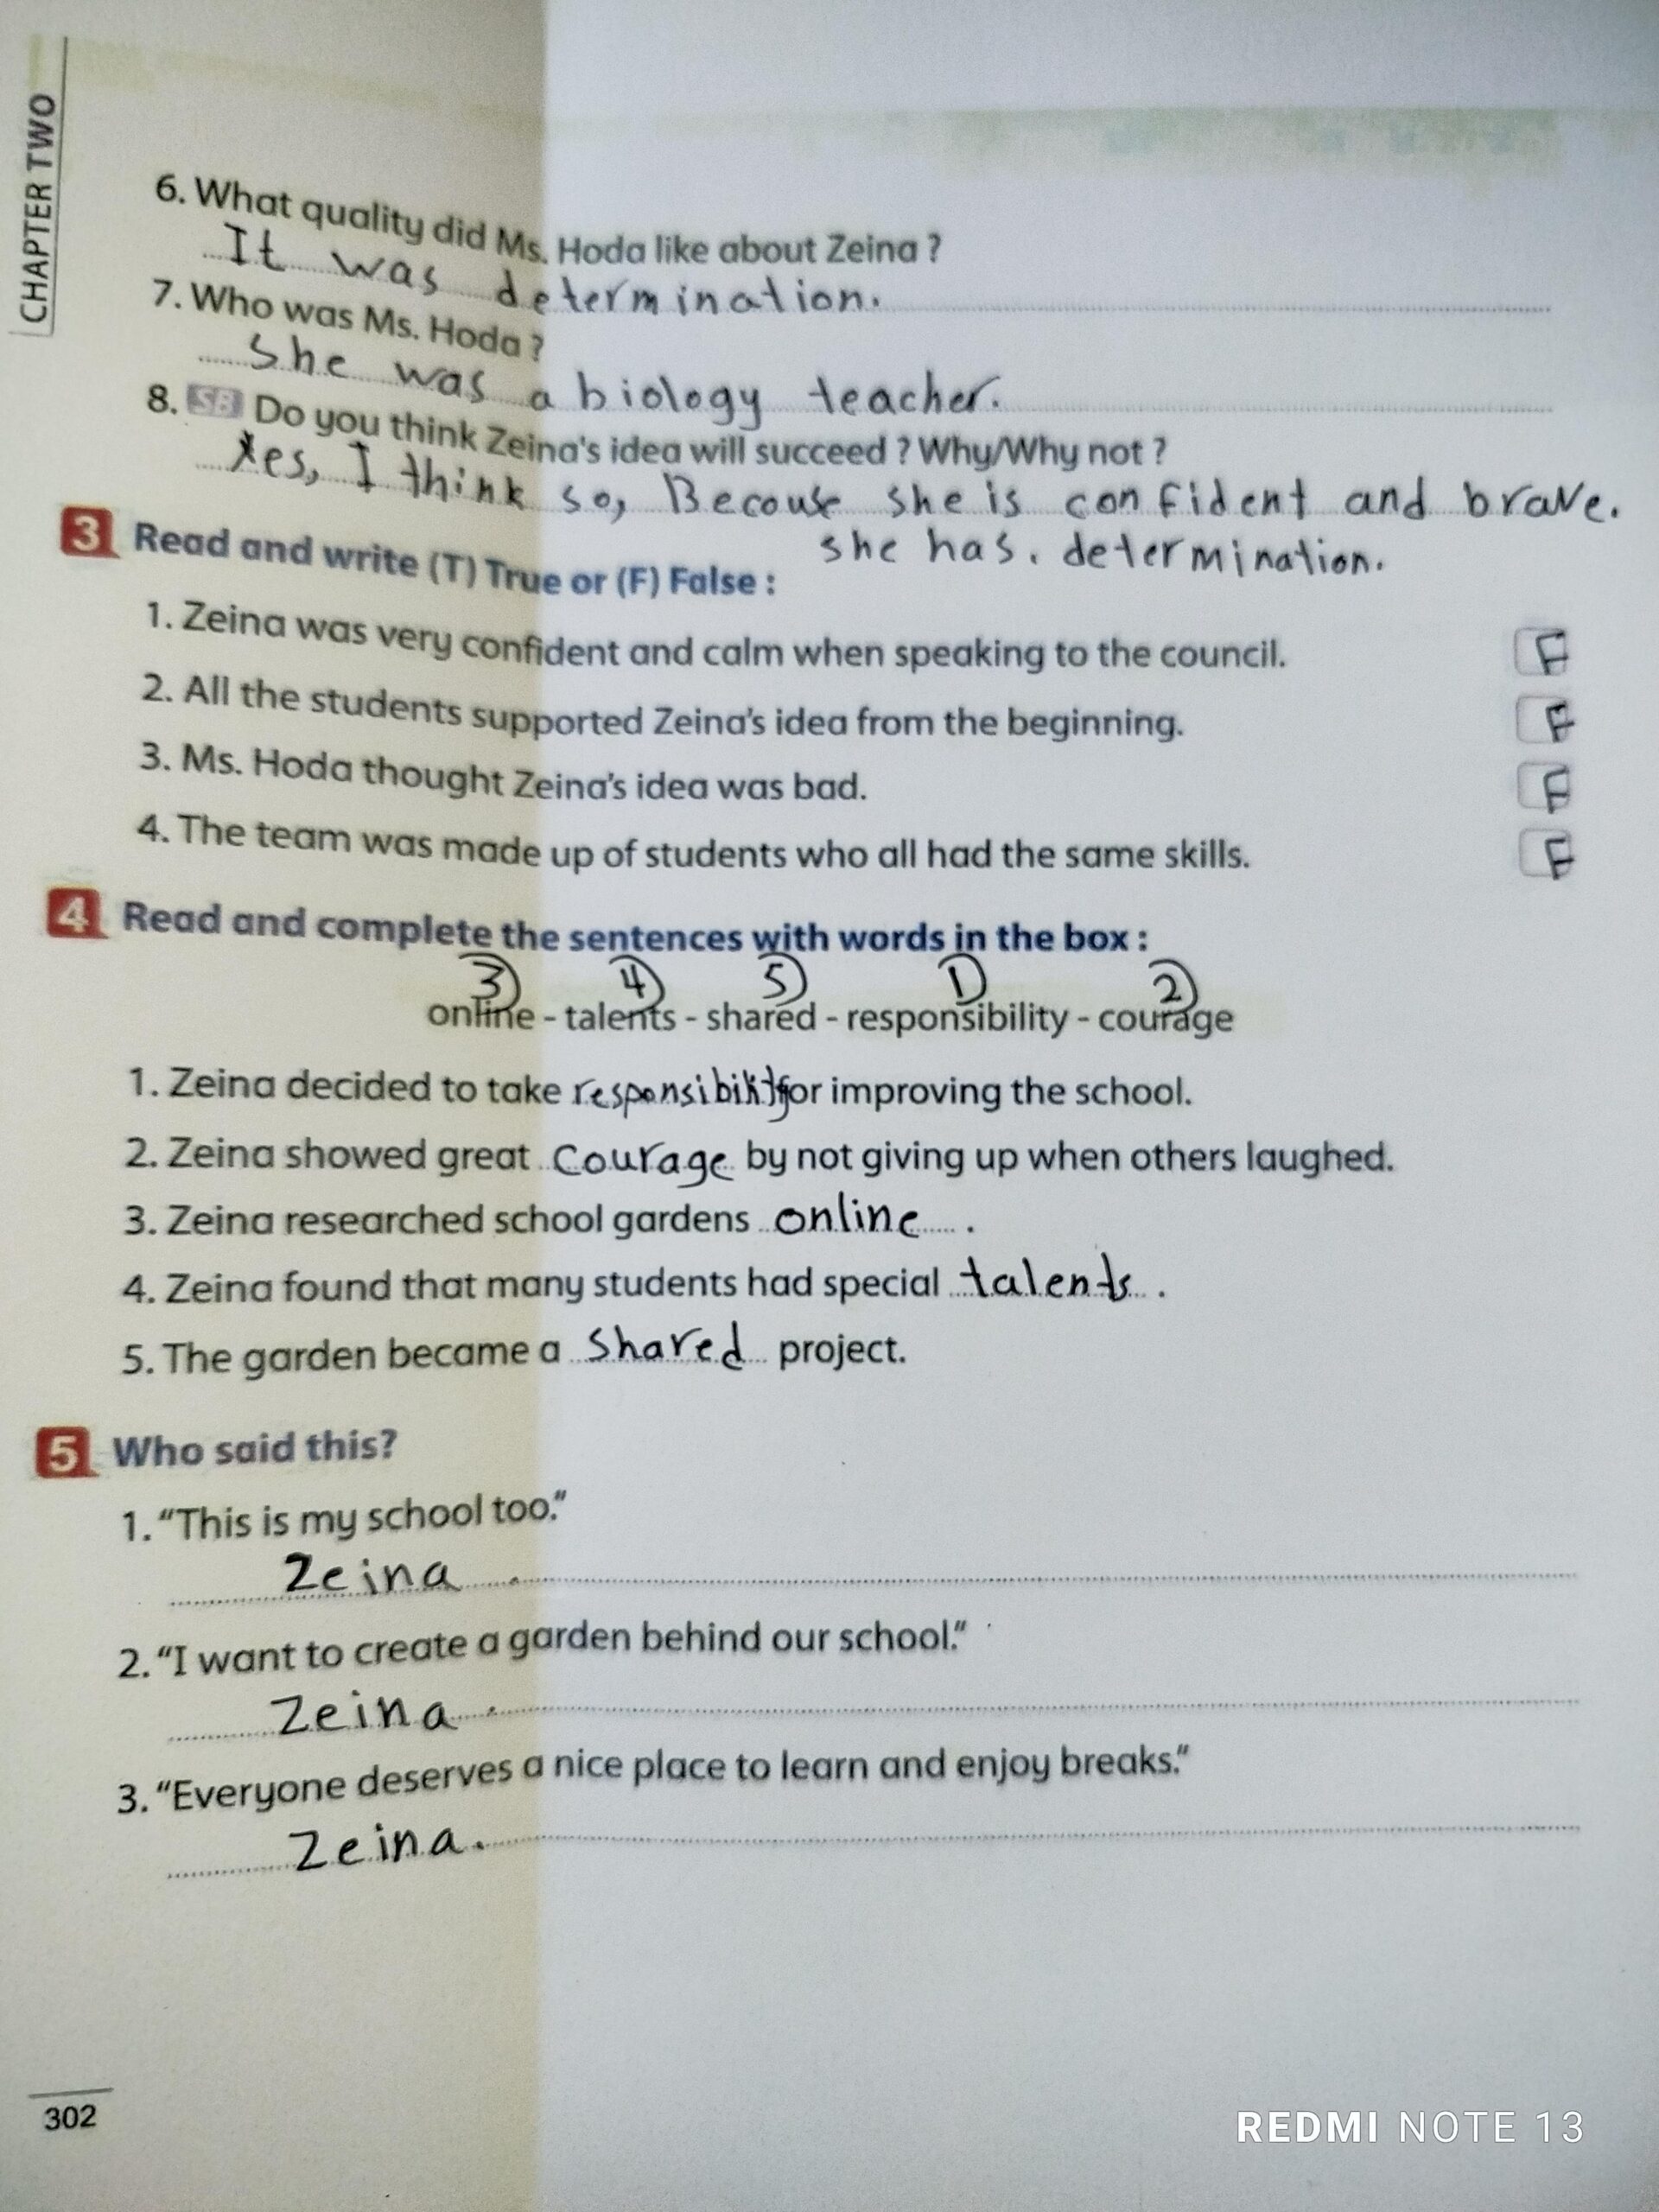 CHAPTER TWO
6. What quality did Ms. Hoda like about Zeina ?
It was determination.
7. Who was Ms. Hoda ?
She was a biology teacher.
8. SB Do you think Zeina's idea will succeed ? Why/Why not ?
Yes, I think so, Becouse she is confident and brave.
she has. determination.
3 Read and write (T) True or (F) False :
1. Zeina was very confident and calm when speaking to the council. F
2. All the students supported Zeina's idea from the beginning. F
3. Ms. Hoda thought Zeina's idea was bad. F
4. The team was made up of students who all had the same skills. F
4 Read and complete the sentences with words in the box :
3 4 5 1 2
online - talents - shared - responsibility - courage
1. Zeina decided to take responsibility for improving the school.
2. Zeina showed great courage by not giving up when others laughed.
3. Zeina researched school gardens online .
4. Zeina found that many students had special talents .
5. The garden became a shared project.
5 Who said this?
1. "This is my school too."
Zeina .
2. "I want to create a garden behind our school."
Zeina .
3. "Everyone deserves a nice place to learn and enjoy breaks."
Zeina.
302
REDMI NOTE 13